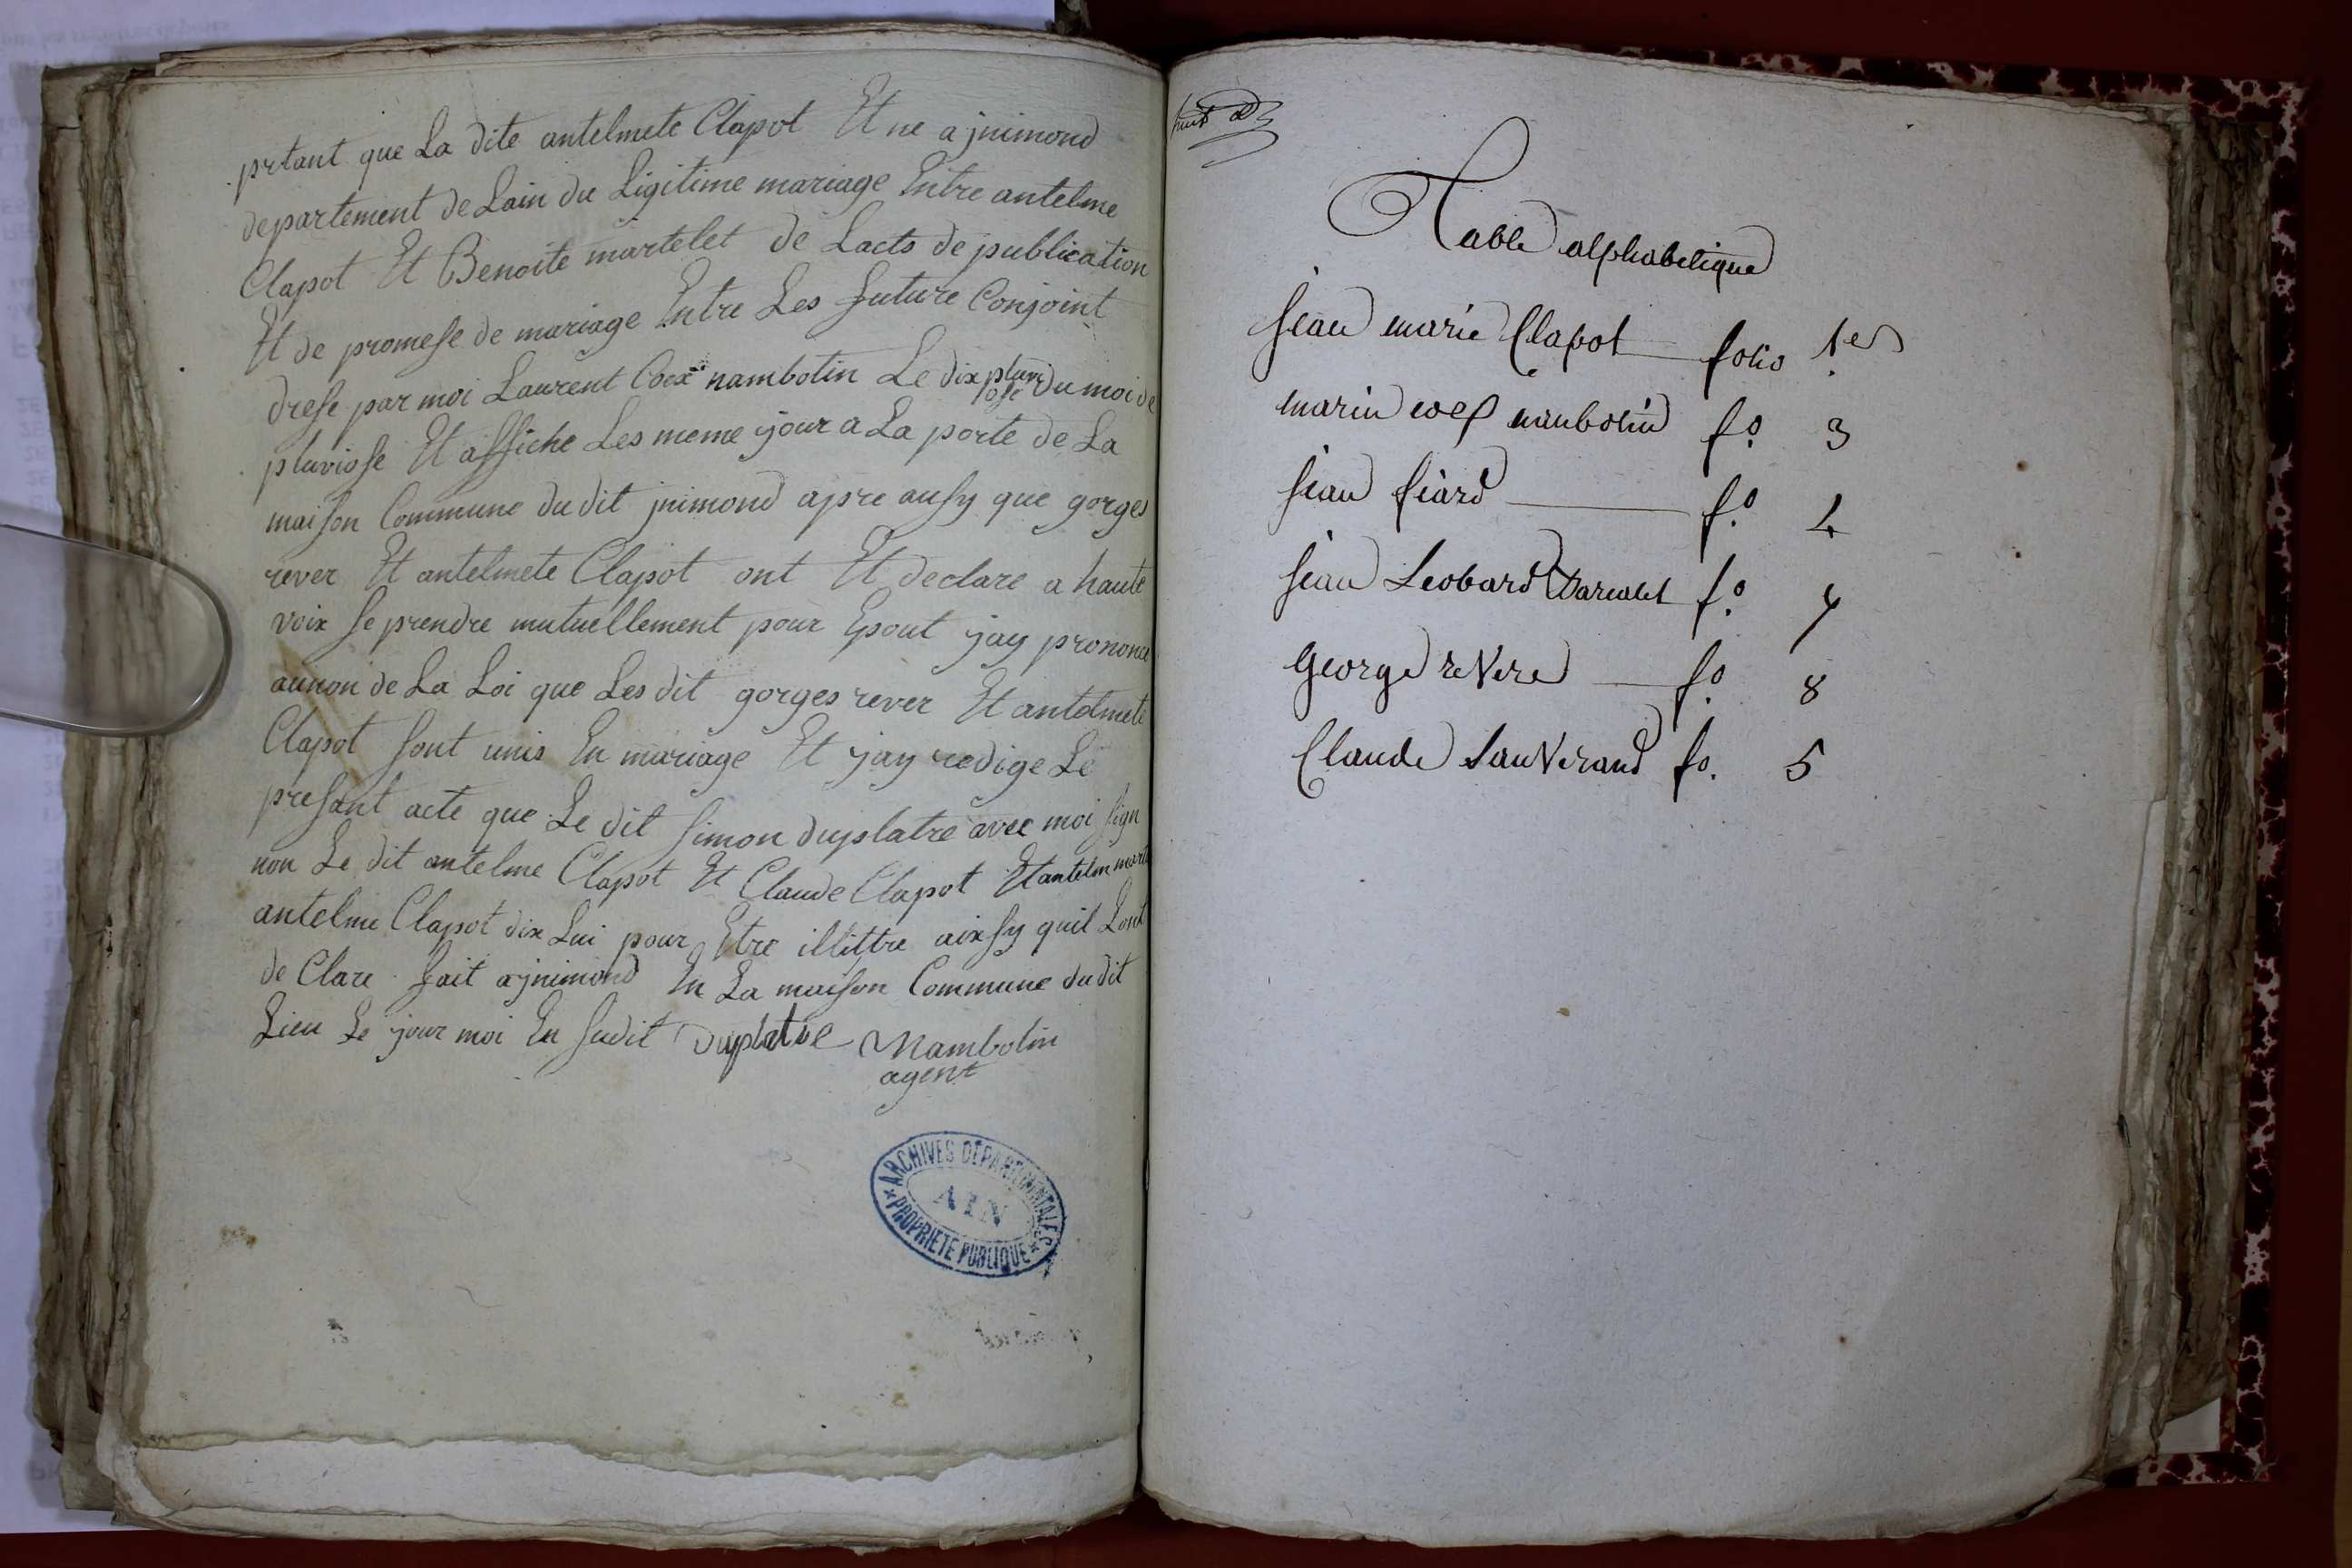 prtant que La dite antelmete Clapot Et ne a jnimond
departement de Lain du Ligitime mariage Entre antelme
Clapot Et Benoite martelet de Lacts de publication
Et de promese de mariage Entre Les future Conjoint
drese par moi Laurent Coex nambotin Le dix pluviose du moi de
pluviose Et affiche Les meme jour a La porte de La
maison Commune du dit jnimond apre ausy que gorges
rever Et antelmete Clapot ont Et declare a haute
voix se prendre mutuellement pour Epout jay prononce
aunon de La Loi que Les dit gorges rever Et antelmete
Clapot sont unis En mariage Et jay redige Le
presant acte que Le dit simon duplatre avec moi sign
non Le dit antelme Clapot Et Claude Clapot Et antelm
antelme Clapot dix Lui pour Etre illittre aixsy quil Lont
de Clare fait a jnimond En La maison Commune du dit
Lieu Le jour moi En sudit Duplatre Nambotin
agent
ARCHIVES DEPARTEMENTALES
AIN
PROPRIETE PUBLIQUE
huit
Table alphabetique
jean marie Clapot folio 1er
marin coex nanbotin fo. 3
jean fiard fo. 4
jean Leobard fo. 7
george reVere fo. 8
Claude sauVerand fo. 5